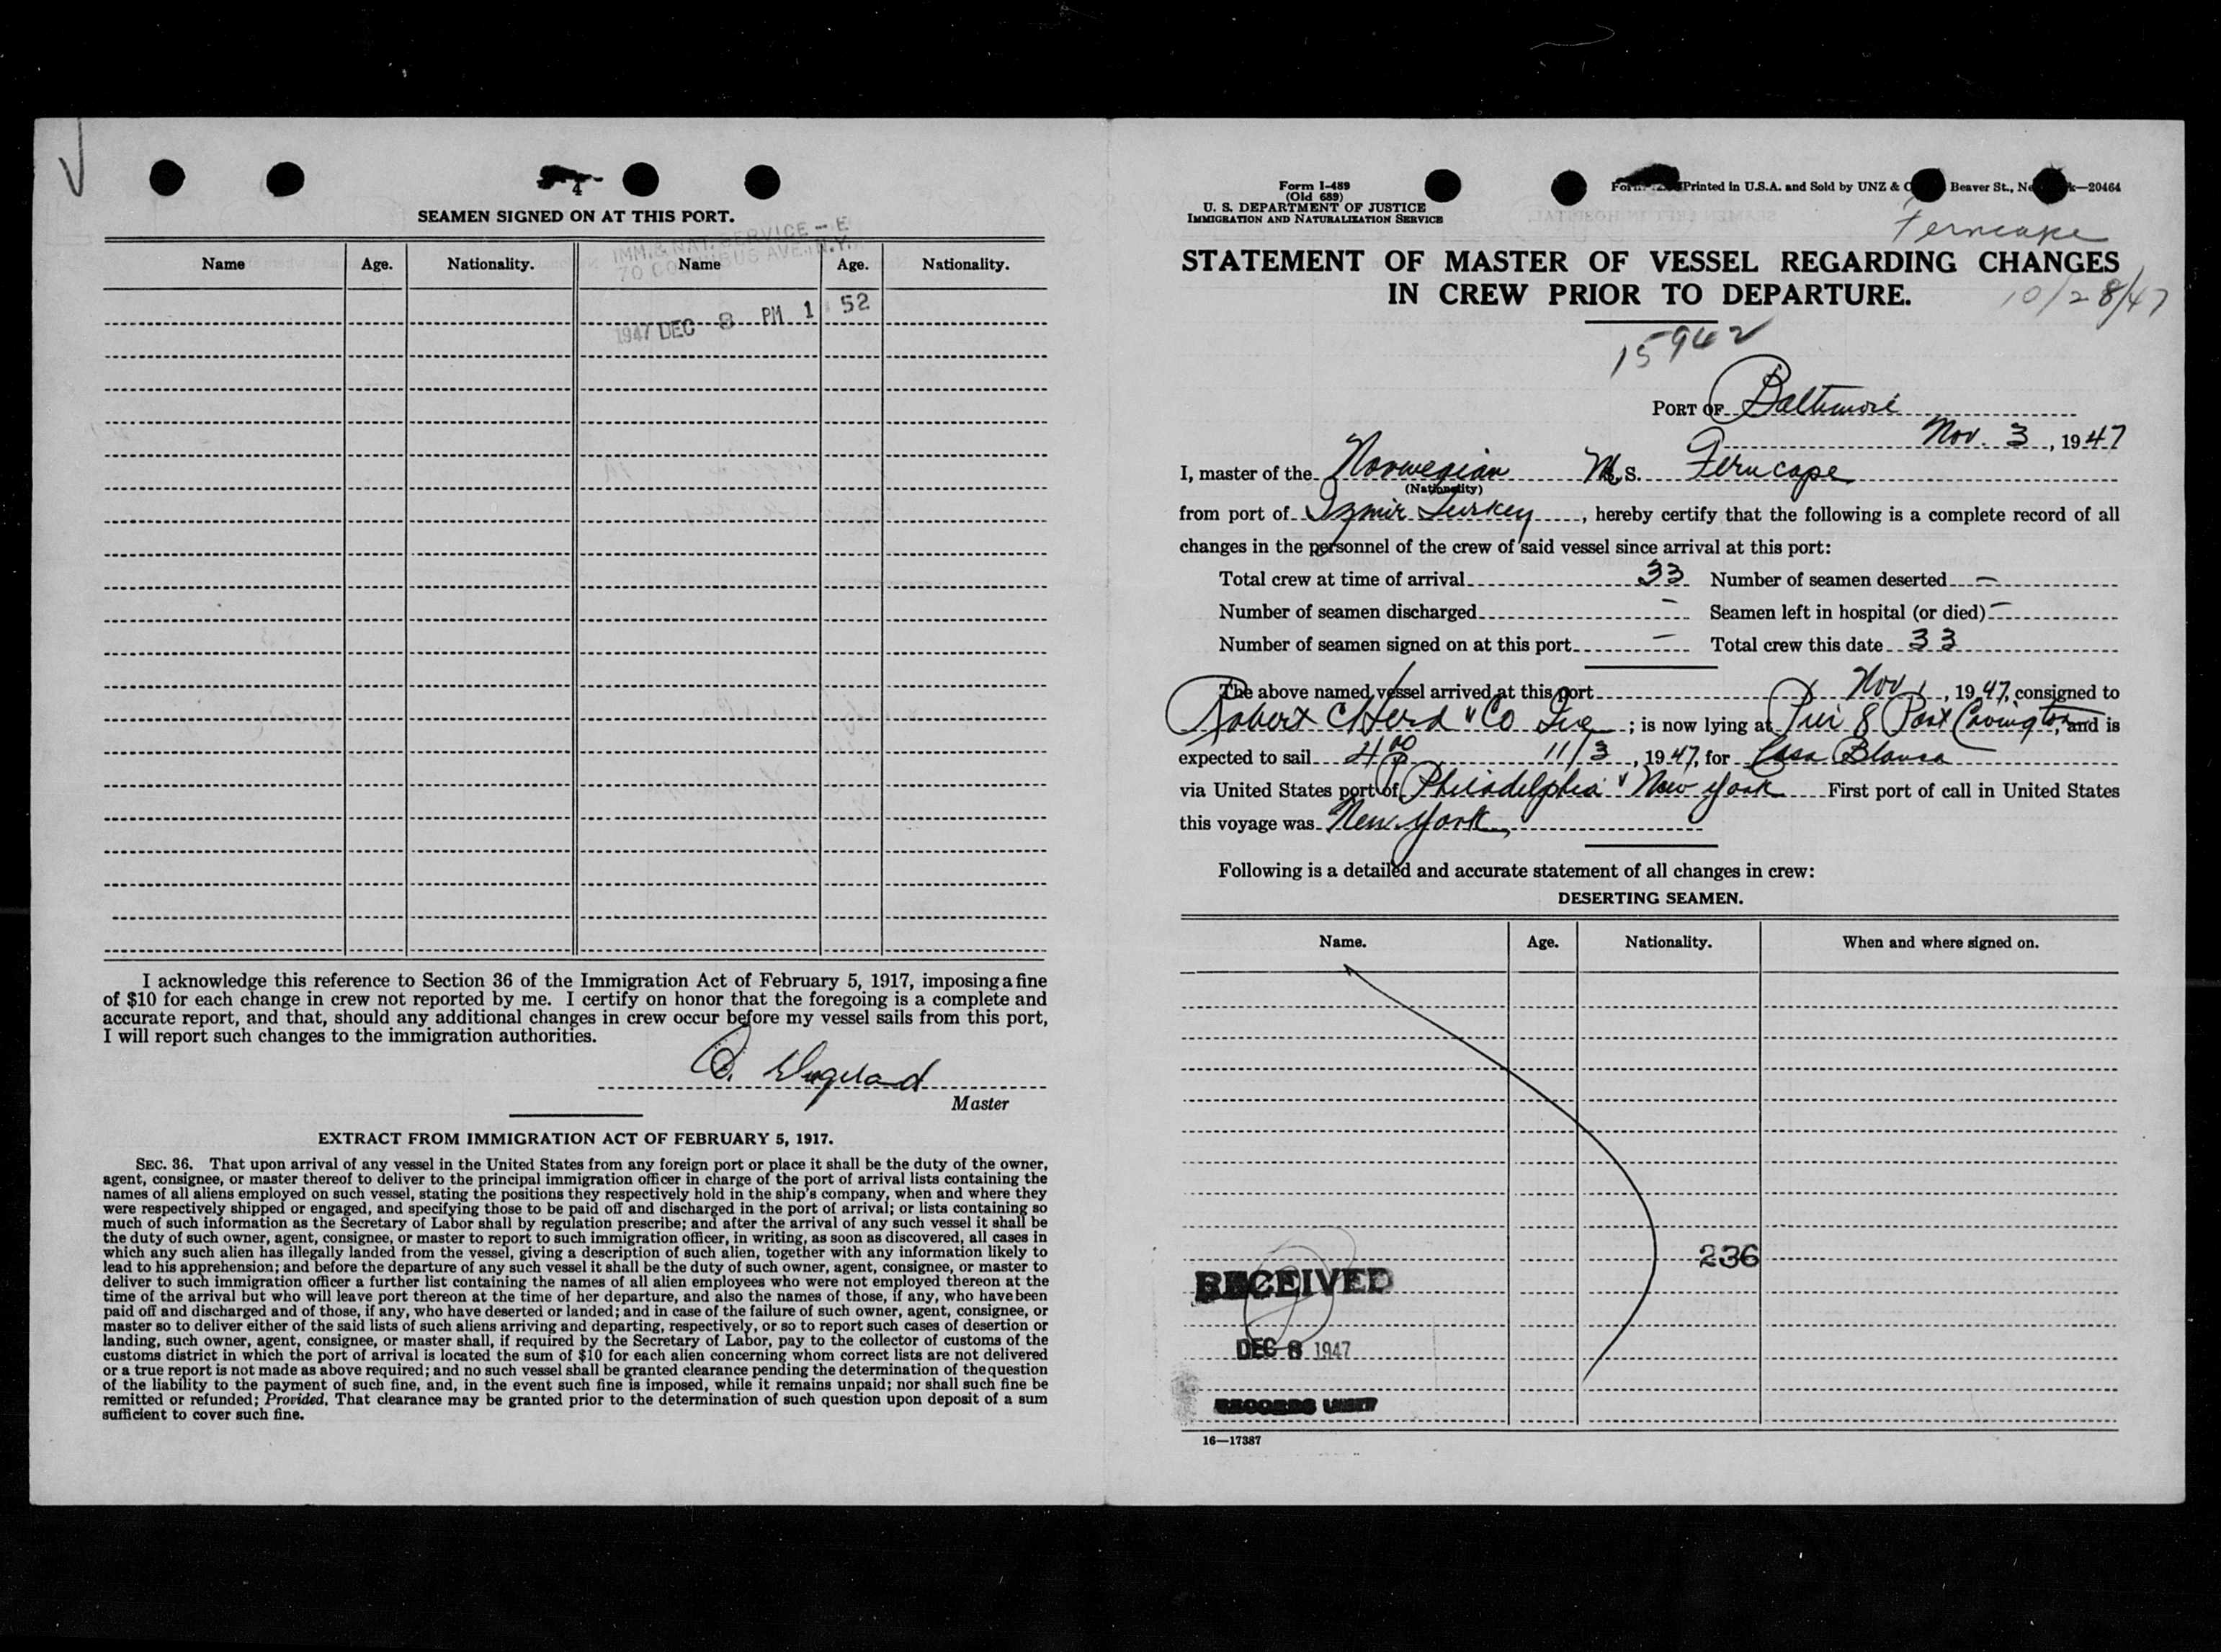 4
SEAMEN SIGNED ON AT THIS PORT.
IMM. & NAT. SERVICE — E
70 COLUMBUS AVE. N.Y.
Name Age. Nationality. Name Age. Nationality.
1947 DEC 8 PM 1 52
I acknowledge this reference to Section 36 of the Immigration Act of February 5, 1917, imposing a fine
of $10 for each change in crew not reported by me. I certify on honor that the foregoing is a complete and
accurate report, and that, should any additional changes in crew occur before my vessel sails from this port,
I will report such changes to the immigration authorities.
Master
EXTRACT FROM IMMIGRATION ACT OF FEBRUARY 5, 1917.
SEC. 36. That upon arrival of any vessel in the United States from any foreign port or place it shall be the duty of the owner,
agent, consignee, or master thereof to deliver to the principal immigration officer in charge of the port of arrival lists containing the
names of all aliens employed on such vessel, stating the positions they respectively hold in the ship's company, when and where they
were respectively shipped or engaged, and specifying those to be paid off and discharged in the port of arrival; or lists containing so
much of such information as the Secretary of Labor shall by regulation prescribe; and after the arrival of any such vessel it shall be
the duty of such owner, agent, consignee, or master to report to such immigration officer, in writing, as soon as discovered, all cases in
which any such alien has illegally landed from the vessel, giving a description of such alien, together with any information likely to
lead to his apprehension; and before the departure of any such vessel it shall be the duty of such owner, agent, consignee, or master to
deliver to such immigration officer a further list containing the names of all alien employees who were not employed thereon at the
time of the arrival but who will leave port thereon at the time of her departure, and also the names of those, if any, who have been
paid off and discharged and of those, if any, who have deserted or landed; and in case of the failure of such owner, agent, consignee, or
master so to deliver either of the said lists of such aliens arriving and departing, respectively, or so to report such cases of desertion or
landing, such owner, agent, consignee, or master shall, if required by the Secretary of Labor, pay to the collector of customs of the
customs district in which the port of arrival is located the sum of $10 for each alien concerning whom correct lists are not delivered
or a true report is not made as above required; and no such vessel shall be granted clearance pending the determination of the question
of the liability to the payment of such fine, and, in the event such fine is imposed, while it remains unpaid; nor shall such fine be
remitted or refunded; Provided, That clearance may be granted prior to the determination of such question upon deposit of a sum
sufficient to cover such fine.
Form I-489
(Old 689)
U. S. DEPARTMENT OF JUSTICE
IMMIGRATION AND NATURALIZATION SERVICE
Printed in U.S.A. and Sold by UNZ & Beaver St., —20464
Ferncape
STATEMENT OF MASTER OF VESSEL REGARDING CHANGES
IN CREW PRIOR TO DEPARTURE.
10/28/47
15942
PORT OF Baltimore
Nov. 3, 1947
I, master of the Norwegian M.S. Ferncape
(Nationality)
from port of Izmir Turkey, hereby certify that the following is a complete record of all
changes in the personnel of the crew of said vessel since arrival at this port:
Total crew at time of arrival 33 Number of seamen deserted —
Number of seamen discharged — Seamen left in hospital (or died) —
Number of seamen signed on at this port — Total crew this date 33
The above named vessel arrived at this port Nov 1, 1947, consigned to
Robert C Herd & Co Inc; is now lying at Pier 8 Port Covington, and is
expected to sail 4 00 P 11/3, 1947, for Casa Blanca
via United States port of Philadelphia & New York First port of call in United States
this voyage was New York
Following is a detailed and accurate statement of all changes in crew:
DESERTING SEAMEN.
Name. Age. Nationality. When and where signed on.
236
RECEIVED
DEC 8 1947
RECORDS UNIT
16—17387